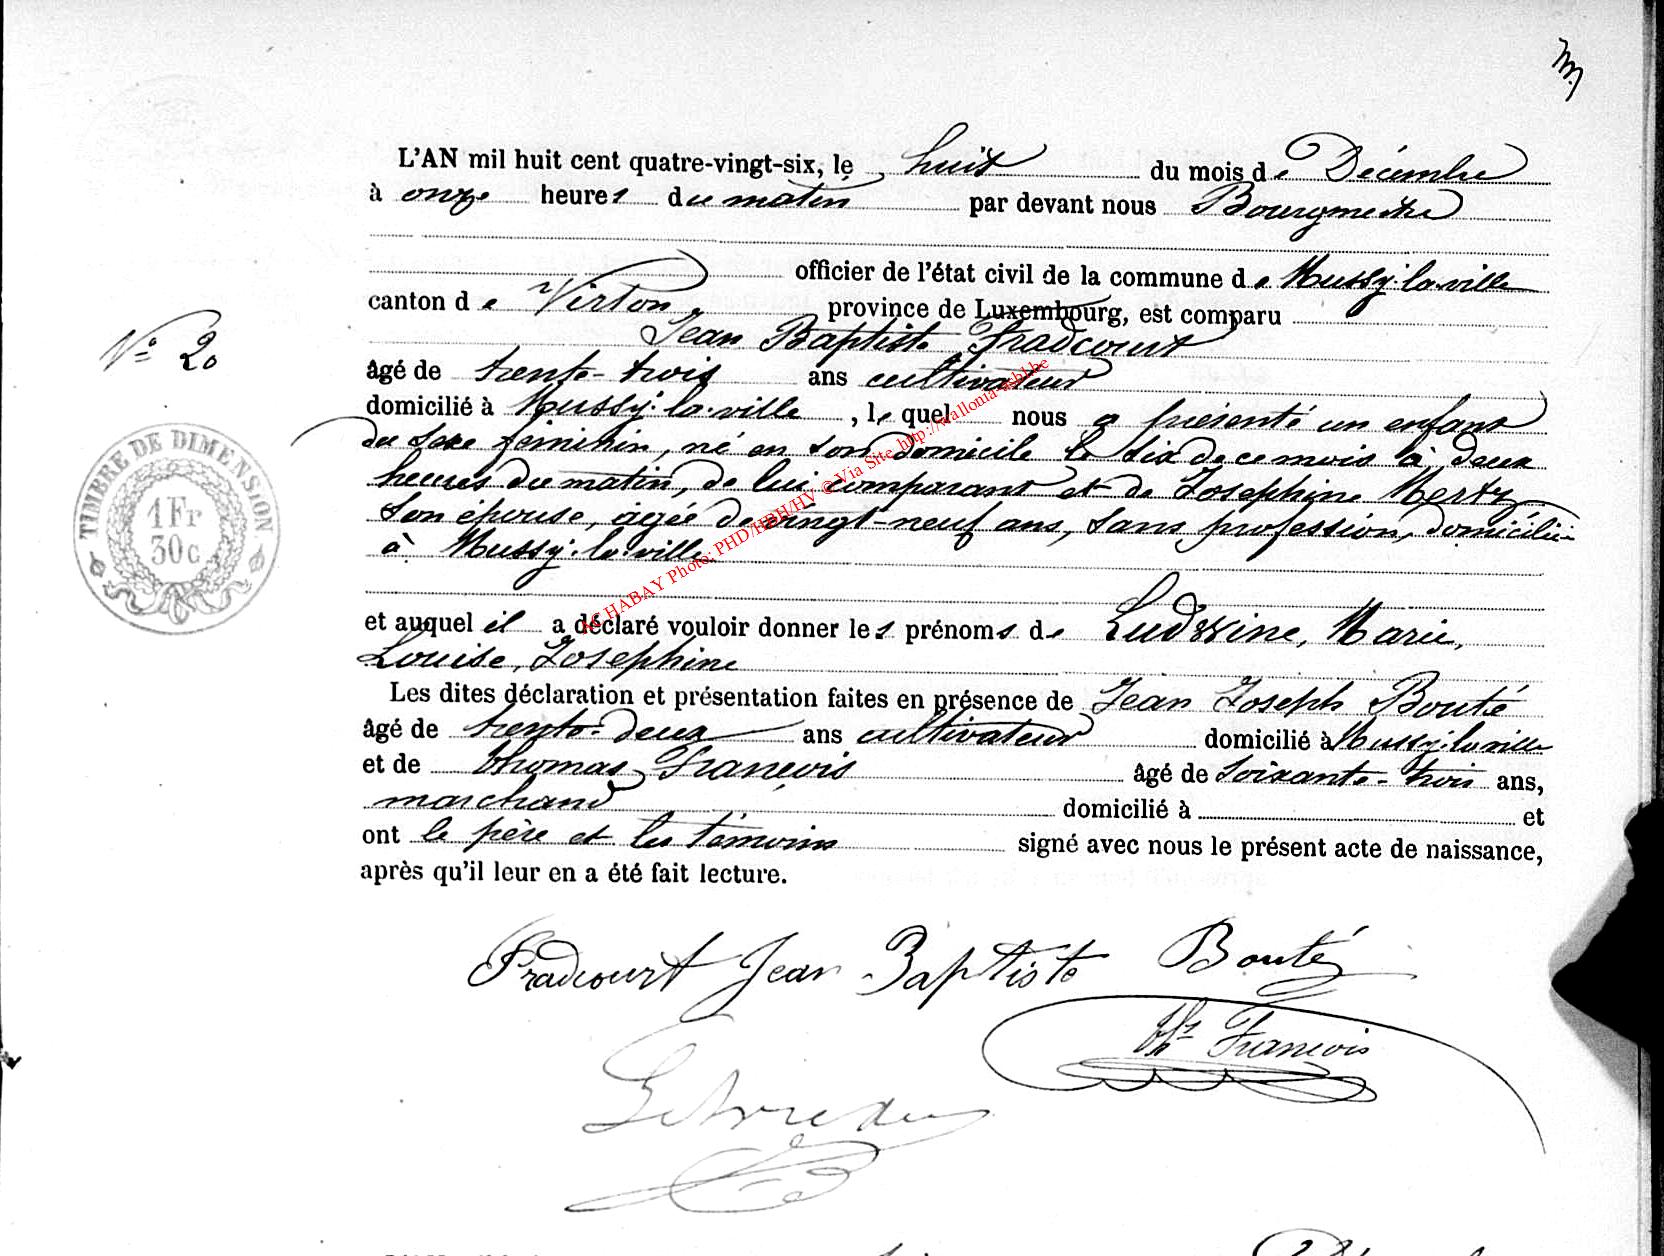 L'AN mil huit cent quatre-vingt-six, le huit du mois de Décembre
à onze heures du matin par devant nous Bourgmestre
officier de l'état civil de la commune de Mussy-la-ville
canton de Virton province de Luxembourg, est comparu
Jean Baptiste Fradcourt
âgé de trente-trois ans cultivateur
N° 20
domicilié à Mussy-la-ville, lequel nous a présenté un enfant
du sexe féminin, né en son domicile le six de ce mois à deux
heures du matin, de lui comparant et de Josephine Mertz
son épouse, agée de vingt-neuf ans, sans profession, domiciliée
à Mussy-la-ville
TIMBRE DE DIMENSION
1 Fr
30 c
AC HABAY Photo: PHD/HBH/HY © Via Site http://wallonia-asbl.be
et auquel il a déclaré vouloir donner les prénoms de Ludwine, Marie,
Louise, Josephine
Les dites déclaration et présentation faites en présence de Jean Joseph Bouté
âgé de trente-deux ans cultivateur domicilié à Mussy-la-ville
et de Thomas François âgé de soixante-trois ans,
marchand domicilié à et
ont le père et les témoins signé avec nous le présent acte de naissance,
après qu'il leur en a été fait lecture.
Fradcourt Jean Baptiste Bouté
Ths François